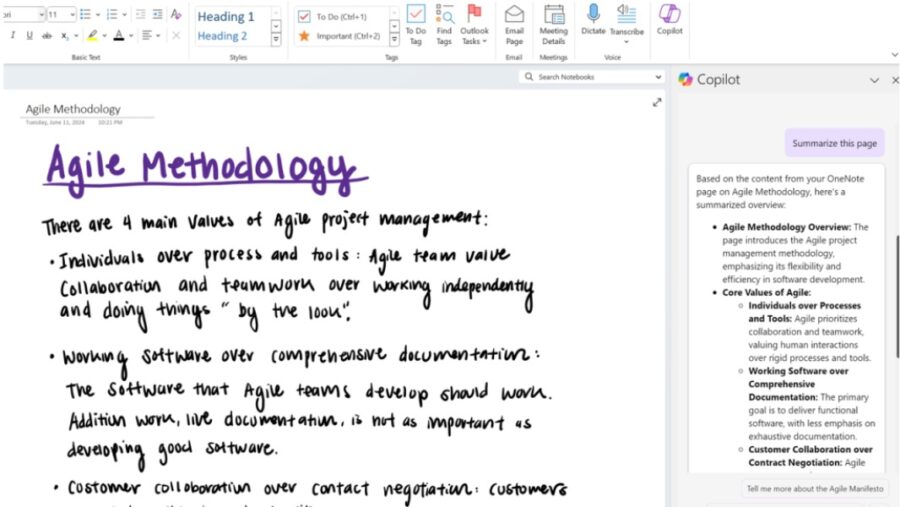 11
Heading 1
Heading 2
To Do (Ctrl+1)
Important (Ctrl+2)
To Do
Tag
Find
Tags
Outlook
Tasks
Email
Page
Meeting
Details
Dictate
Transcribe
Copilot
Basic Text
Styles
Tags
Email
Meetings
Voice
Search Notebooks
Agile Methodology
Tuesday, June 11, 2024 10:21 PM
Agile Methodology
There are 4 main values of Agile project management:
• Individuals over process and tools: Agile team value
Collaboration and teamwork over working independently
and doing things "by the book".
• Working software over comprehensive documentation:
The software that Agile teams develop should work.
Addition work, like documentation, is not as important as
developing good software.
• Customer collaboration over contact negotiation: customers
Copilot
Summarize this page
Based on the content from your OneNote
page on Agile Methodology, here's a
summarized overview:
• Agile Methodology Overview: The
page introduces the Agile project
management methodology,
emphasizing its flexibility and
efficiency in software development.
• Core Values of Agile:
Individuals over Processes
and Tools: Agile prioritizes
collaboration and teamwork,
valuing human interactions
over rigid processes and tools.
Working Software over
Comprehensive
Documentation: The primary
goal is to deliver functional
software, with less emphasis on
exhaustive documentation.
Customer Collaboration over
Contract Negotiation: Agile
Tell me more about the Agile Manifesto